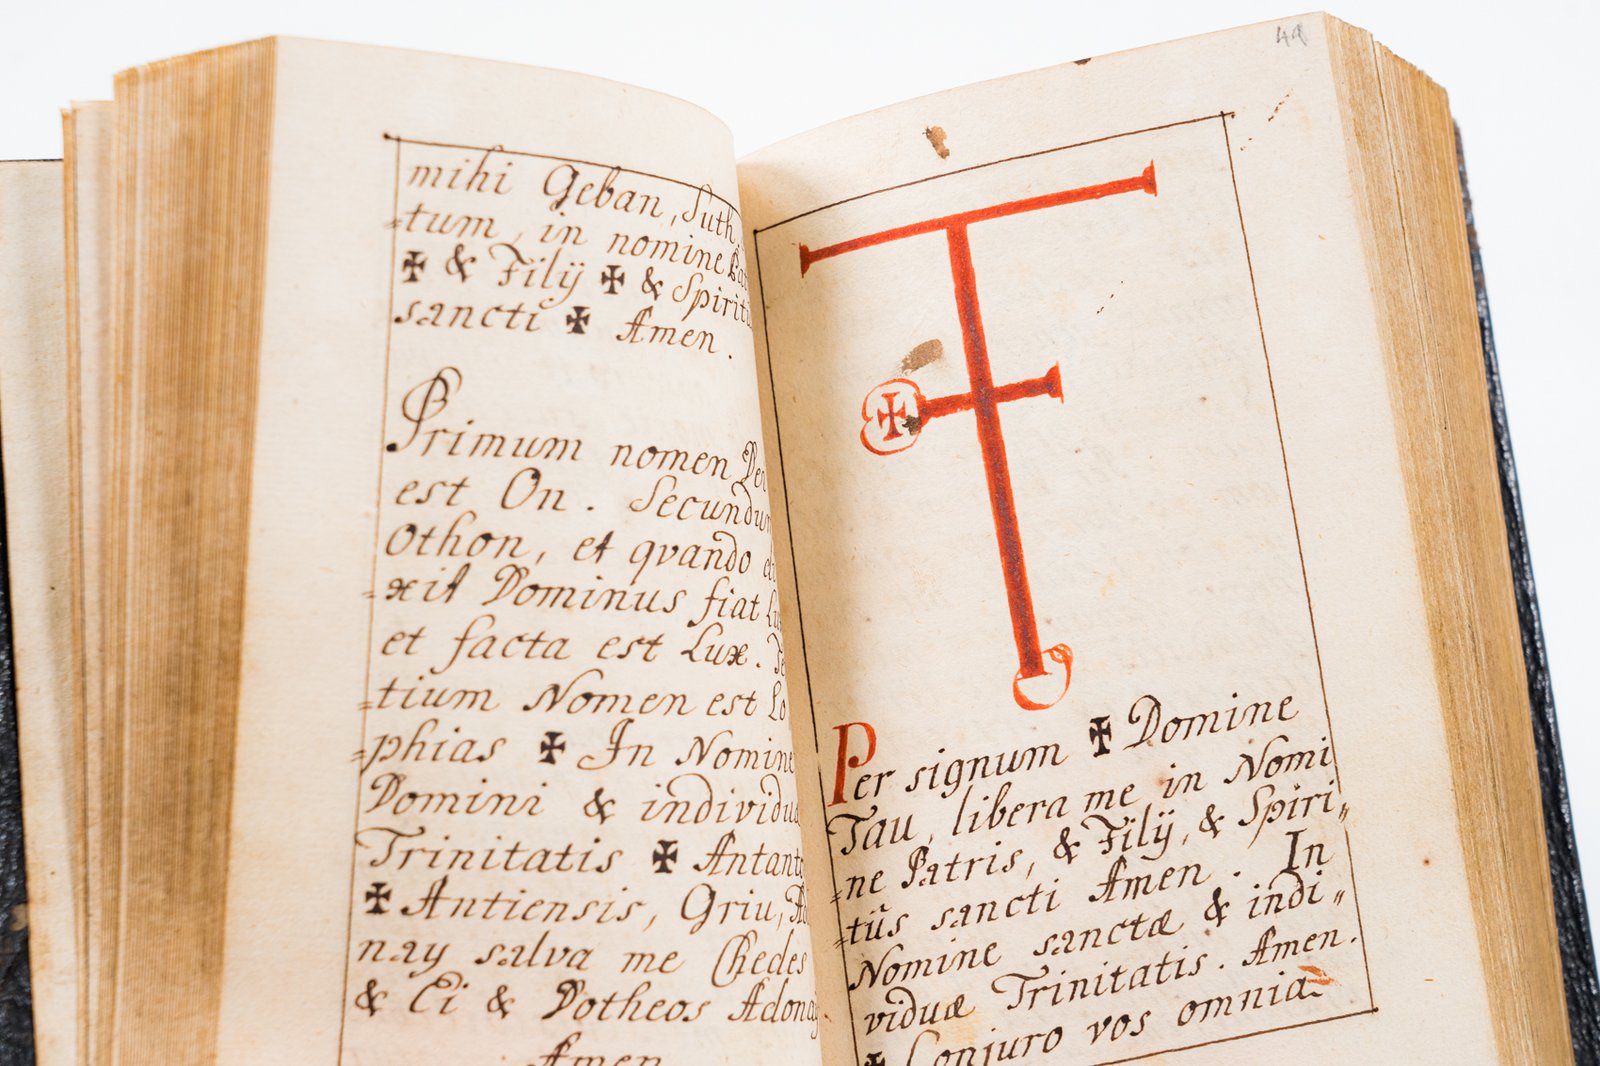 mihi Geban, Suth
=tum, in nomine
✠ & Filÿ ✠ & Spirit
sancti ✠ Amen.
Primum nomen
est On. Secundum
Othon, et qvando
=xit Dominus fiat
et facta est Lux.
=tium Nomen est Lo
=phias ✠ In Nomine
Domini & individuæ
Trinitatis ✠
✠ Antiensis, Griu,
nay salva me Chedes
& Ei & Potheos Adonay
Amen
49
Per signum ✠ Domine
Tau, libera me in Nomi
=ne Patris, & Filÿ, & Spiri„
=tûs sancti Amen. In
Nomine sanctæ & indi„
viduæ Trinitatis. Amen.
✠ Conjuro vos omnia